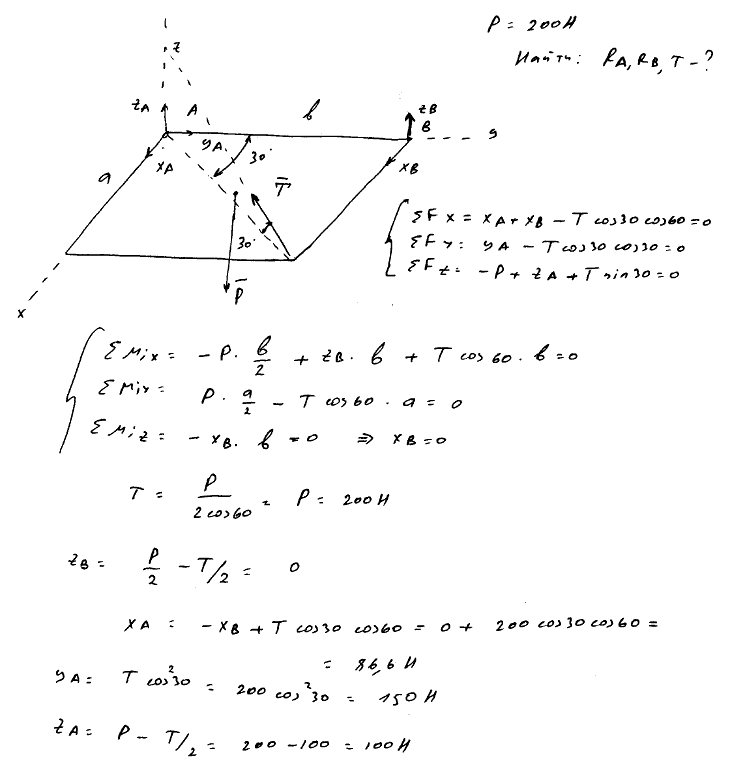 P = 200 Н
Найти: RA, RB, T - ?
z
zA
A
в
zB
B
yA
y
30°
xA
xB
a
T̅
30°
P̅
x
ΣFx = xA + xB - T cos30 cos60 = 0
ΣFy: yA - T cos30 cos30 = 0
ΣFz: -P + zA + T sin30 = 0
ΣMix = -P · в/2 + zB · в + T cos60 · в = 0
ΣMiy = P · a/2 - T cos60 · a = 0
ΣMiz = -xB · в = 0 ⇒ xB = 0
T = P / 2cos60 = P = 200 Н
zB = P/2 - T/2 = 0
xA = -xB + T cos30 cos60 = 0 + 200 cos30 cos60 =
= 86,6 Н
yA = T cos²30 = 200 cos²30 = 150 Н
zA = P - T/2 = 200 - 100 = 100 Н